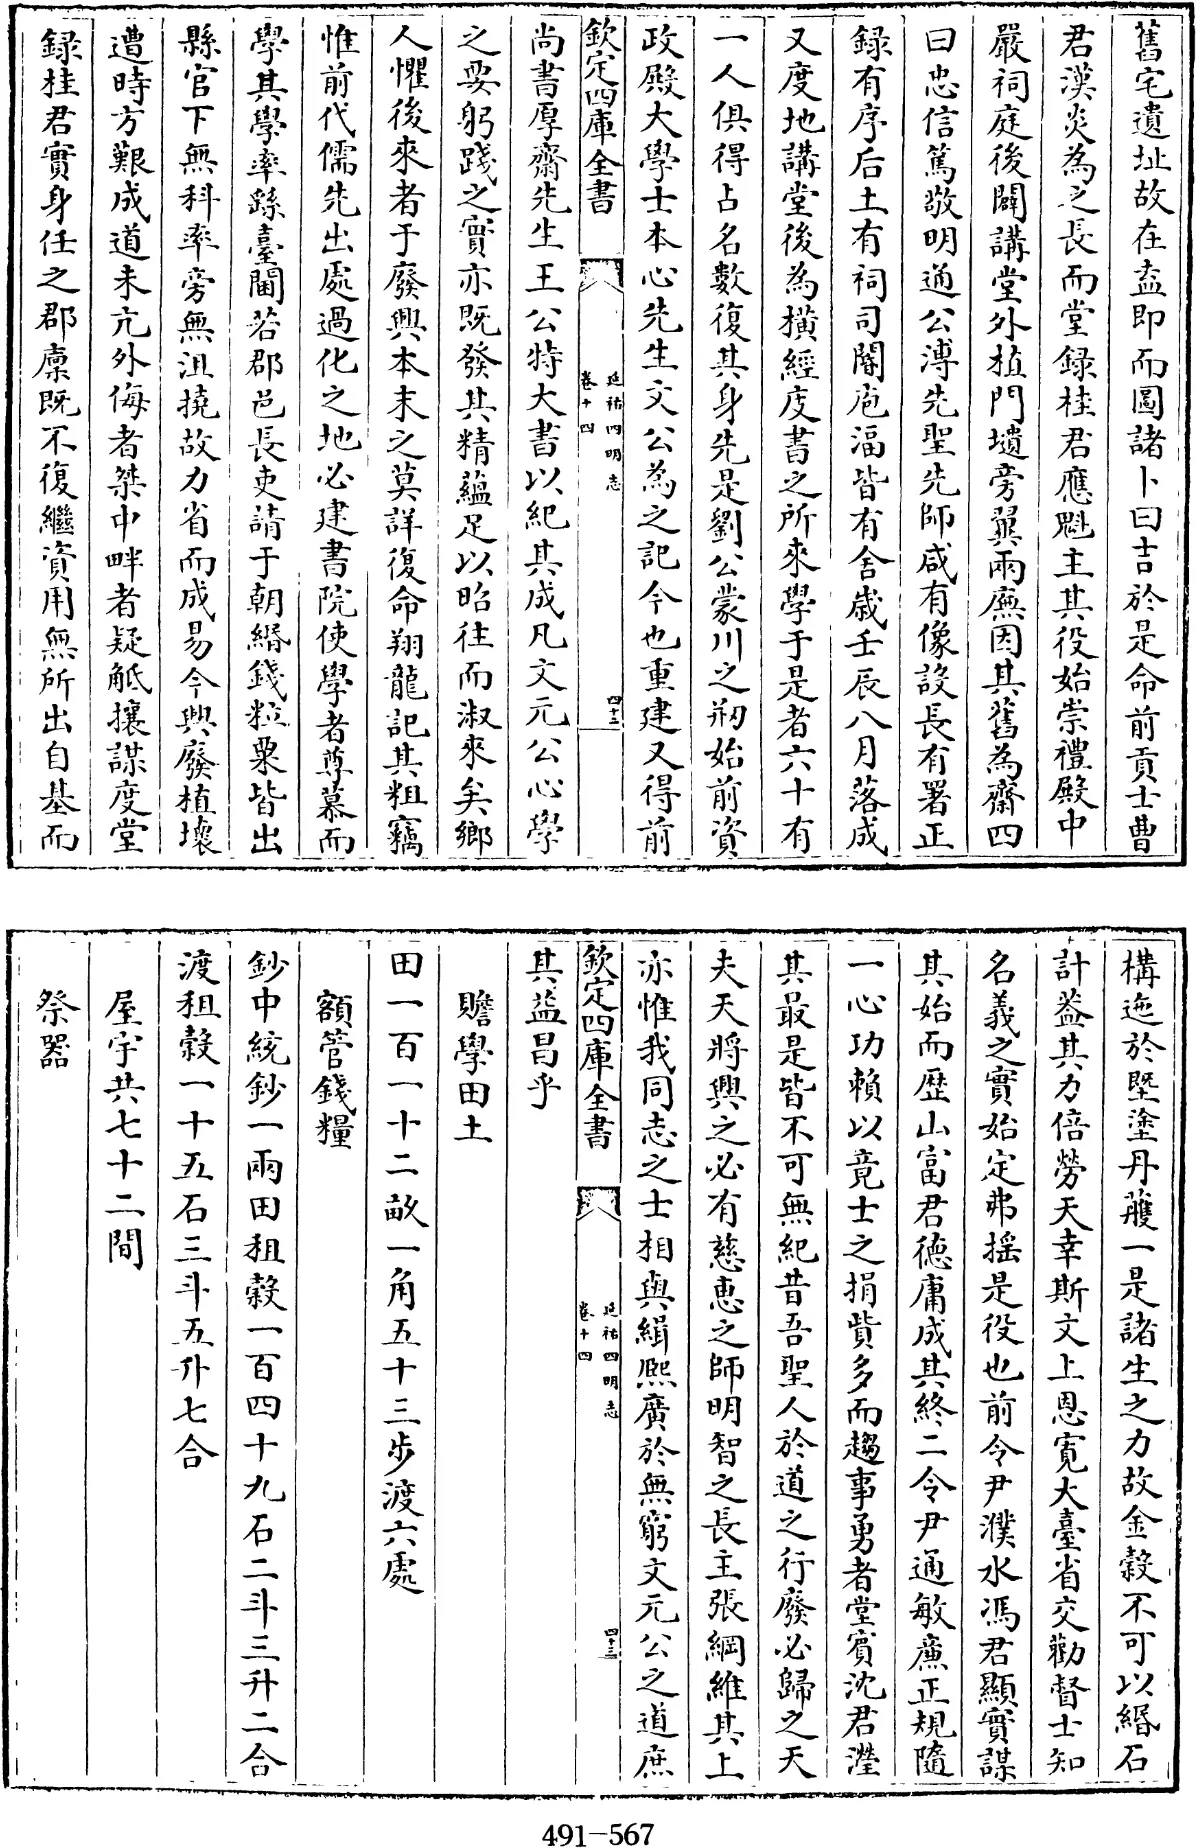 舊宅遺址故在盍即而圖諸卜曰吉於是命前貢士曹
君漢炎為之長而堂録桂君應魁主其役始崇禮殿中
嚴祠庭後闢講堂外植門墻旁翼兩廡因其舊為齋四
曰忠信篤敬明通公溥先聖先師咸有像設長有署正
録有序后土有祠司閽庖湢皆有舎歳壬辰八月落成
又度地講堂後為横經庋書之所來學于是者六十有
一人俱得占名數復其身先是劉公蒙川之刱始前資
政殿大學士本心先生文公為之記今也重建又得前
欽定四庫全書
延祐四明志
卷十四
四十二
尚書厚齋先生王公特大書以紀其成凡文元公心學
之要躬踐之實亦既發其精藴足以昭往而淑來矣鄉
人懼後來者于廢興本末之莫詳復命翔龍記其粗竊
惟前代儒先出處過化之地必建書院使學者尊慕而
學其學率繇臺閫若郡邑長吏請于朝緡錢粒粟皆出
縣官下無科率旁無沮撓故力省而成易今興廢植壊
遭時方艱成道未亢外侮者桀中畔者疑觝攘謀度堂
録桂君實身任之郡廪既不復繼資用無所出自基而
構迤於塈塗丹雘一是諸生之力故金榖不可以緡石
計葢其力倍勞天幸斯文上恩寛大臺省交勸督士知
名義之實始定弗揺是役也前令尹濮水馮君顯實謀
其始而歴山富君徳庸成其終二令尹通敏亷正規隨
一心功賴以竟士之捐貲多而趨事勇者堂賔沈君瀅
其最是皆不可無紀昔吾聖人於道之行廢必歸之天
夫天將興之必有慈惠之師明智之長主張綱維其上
亦惟我同志之士相與緝熈廣於無窮文元公之道庶
欽定四庫全書
延祐四明志
卷十四
四十三
其益昌乎
贍學田土
田一百一十二畝一角五十三步渡六處
額管錢糧
鈔中統鈔一兩田租榖一百四十九石二斗三升二合
渡租榖一十五石三斗五升七合
屋宇共七十二間
祭器
491-567